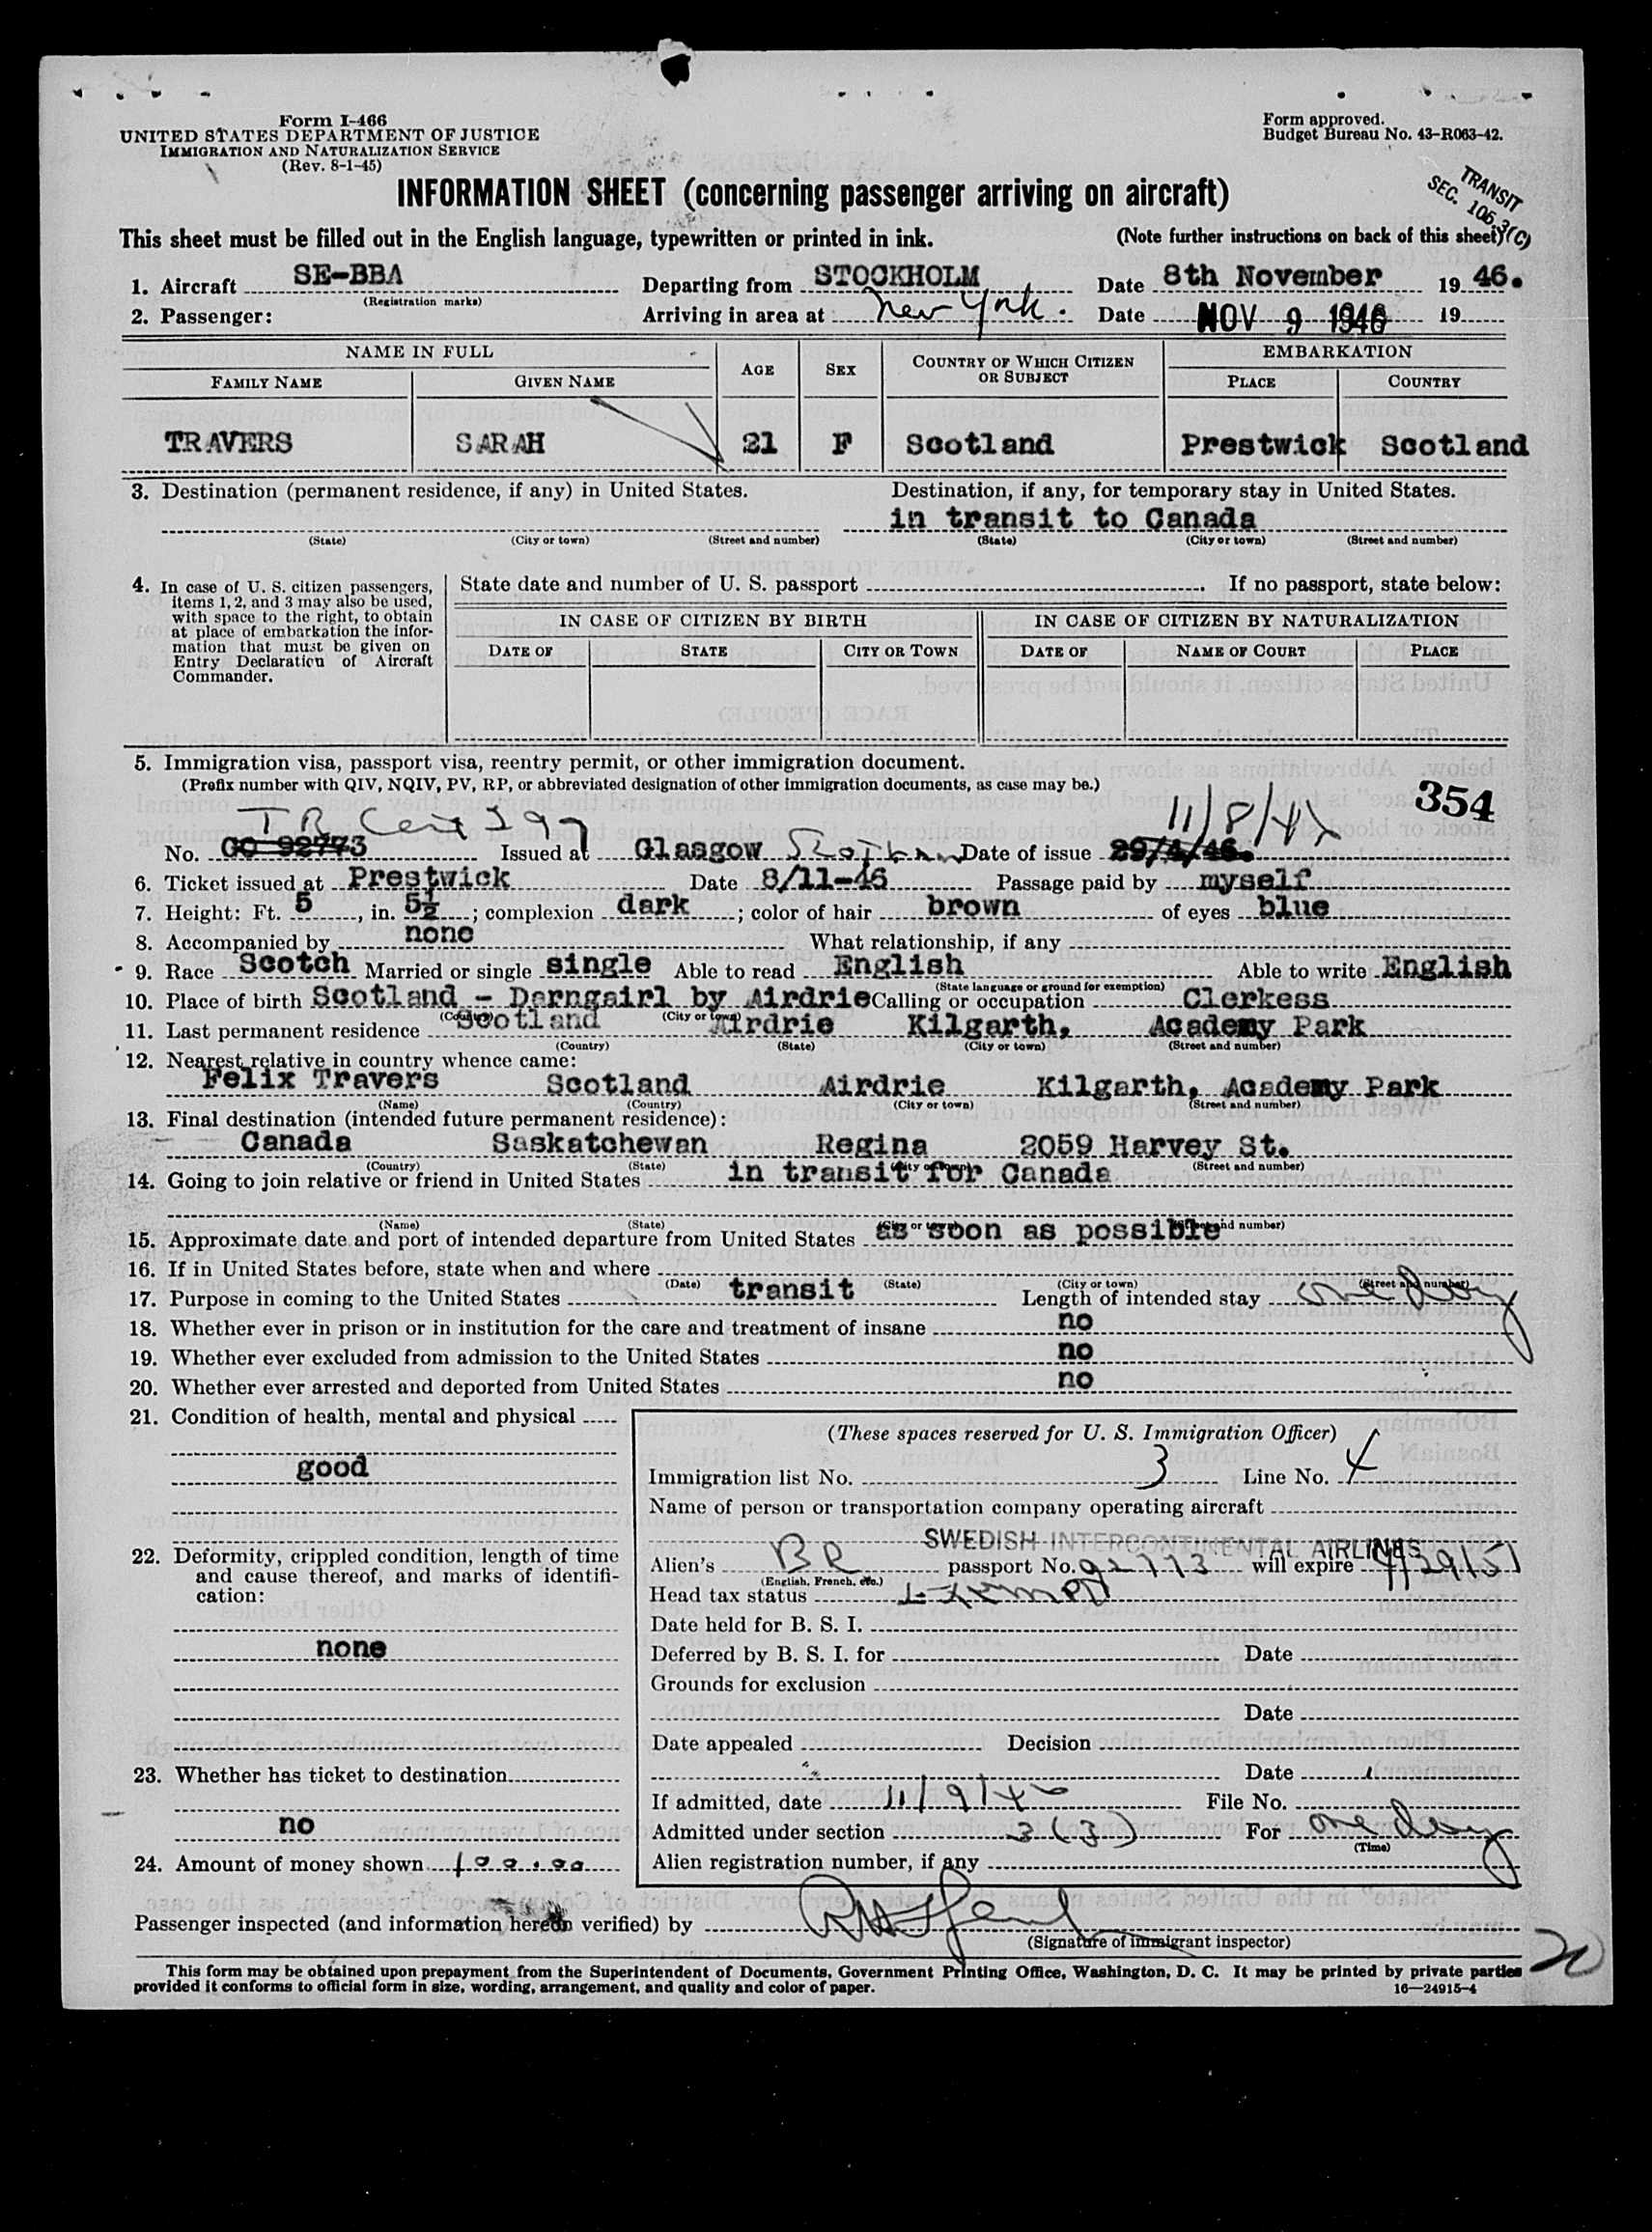 Form I-466
UNITED STATES DEPARTMENT OF JUSTICE
IMMIGRATION AND NATURALIZATION SERVICE
(Rev. 8-1-45)
Form approved.
Budget Bureau No. 43-R063-42.
INFORMATION SHEET (concerning passenger arriving on aircraft)
TRANSIT
SEC. 106.3(C)
This sheet must be filled out in the English language, typewritten or printed in ink. (Note further instructions on back of this sheet)
1. Aircraft SE-BBA Departing from STOCKHOLM Date 8th November 19 46.
(Registration marks)
2. Passenger: Arriving in area at New York. Date NOV 9 1946 19
NAME IN FULL AGE SEX COUNTRY OF WHICH CITIZEN OR SUBJECT EMBARKATION
FAMILY NAME GIVEN NAME PLACE COUNTRY
TRAVERS SARAH 21 F Scotland Prestwick Scotland
3. Destination (permanent residence, if any) in United States. Destination, if any, for temporary stay in United States.
in transit to Canada
(State) (City or town) (Street and number) (State) (City or town) (Street and number)
4. In case of U. S. citizen passengers, items 1, 2, and 3 may also be used, with space to the right, to obtain at place of embarkation the information that must be given on Entry Declaration of Aircraft Commander.
State date and number of U. S. passport . If no passport, state below:
IN CASE OF CITIZEN BY BIRTH IN CASE OF CITIZEN BY NATURALIZATION
DATE OF STATE CITY OR TOWN DATE OF NAME OF COURT PLACE
5. Immigration visa, passport visa, reentry permit, or other immigration document.
(Prefix number with QIV, NQIV, PV, RP, or abbreviated designation of other immigration documents, as case may be.)
354
TR Cert 197 11/8/46
No. CO 92773 Issued at Glasgow Scotland Date of issue 29/4/46.
6. Ticket issued at Prestwick Date 8/11-46 Passage paid by myself
7. Height: Ft. 5, in. 5½; complexion dark; color of hair brown of eyes blue
8. Accompanied by none What relationship, if any
9. Race Scotch Married or single single Able to read English Able to write English
(State language or ground for exemption)
10. Place of birth Scotland - Darngairl by Airdrie Calling or occupation Clerkess
(Country) (City or town)
11. Last permanent residence Scotland Airdrie Kilgarth, Academy Park
(Country) (State) (City or town) (Street and number)
12. Nearest relative in country whence came:
Felix Travers Scotland Airdrie Kilgarth, Academy Park
(Name) (Country) (City or town) (Street and number)
13. Final destination (intended future permanent residence):
Canada Saskatchewan Regina 2059 Harvey St.
(Country) (State) (City or town) (Street and number)
14. Going to join relative or friend in United States in transit for Canada
(Name) (State) (City or town) (Street and number)
15. Approximate date and port of intended departure from United States as soon as possible
16. If in United States before, state when and where
(Date) (State) (City or town) (Street and number)
17. Purpose in coming to the United States transit Length of intended stay one day
18. Whether ever in prison or in institution for the care and treatment of insane no
19. Whether ever excluded from admission to the United States no
20. Whether ever arrested and deported from United States no
21. Condition of health, mental and physical
good
22. Deformity, crippled condition, length of time and cause thereof, and marks of identification:
none
23. Whether has ticket to destination
no
24. Amount of money shown 100.00
(These spaces reserved for U. S. Immigration Officer)
Immigration list No. 3 Line No. 4
Name of person or transportation company operating aircraft
SWEDISH INTERCONTINENTAL AIRLINES
Alien's BR passport No. 92773 will expire 4/29/51
(English, French, etc.)
Head tax status Exempt
Date held for B. S. I.
Deferred by B. S. I. for Date
Grounds for exclusion
Date
Date appealed Decision
Date
If admitted, date 11/9/46 File No.
Admitted under section 3(3) For one day
(Time)
Alien registration number, if any
Passenger inspected (and information hereon verified) by
(Signature of immigrant inspector)
20
This form may be obtained upon prepayment from the Superintendent of Documents, Government Printing Office, Washington, D. C. It may be printed by private parties
provided it conforms to official form in size, wording, arrangement, and quality and color of paper. 16—24915-4